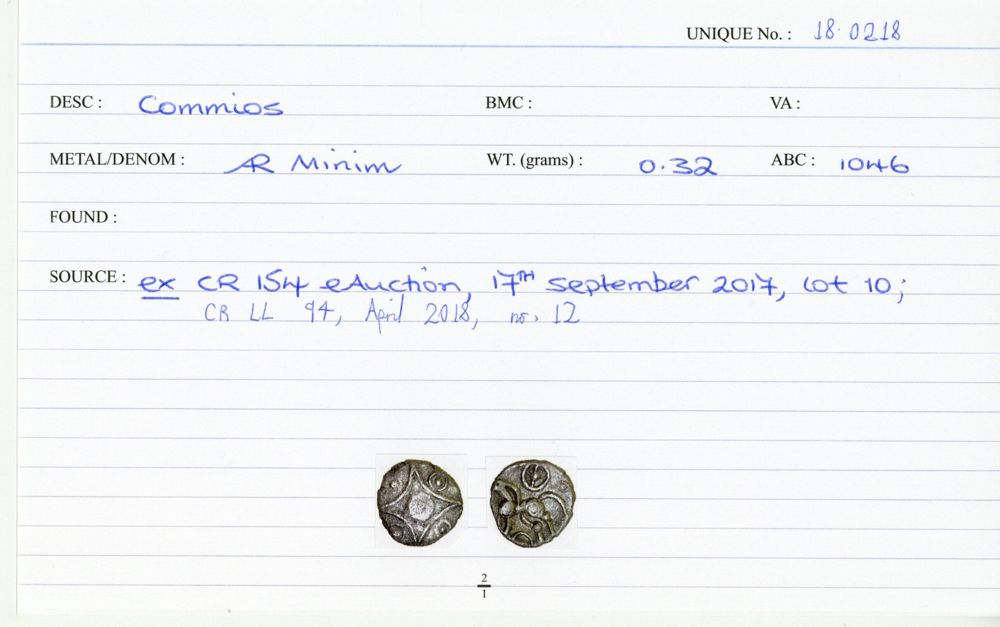 UNIQUE No. : 18.0218
DESC : Commios BMC : VA :
METAL/DENOM : AR Minim WT. (grams) : 0.32 ABC : 1046
FOUND :
SOURCE : ex CR 154 eAuction, 17TH September 2017, lot 10;
CR LL 94, April 2018, no. 12
2
1